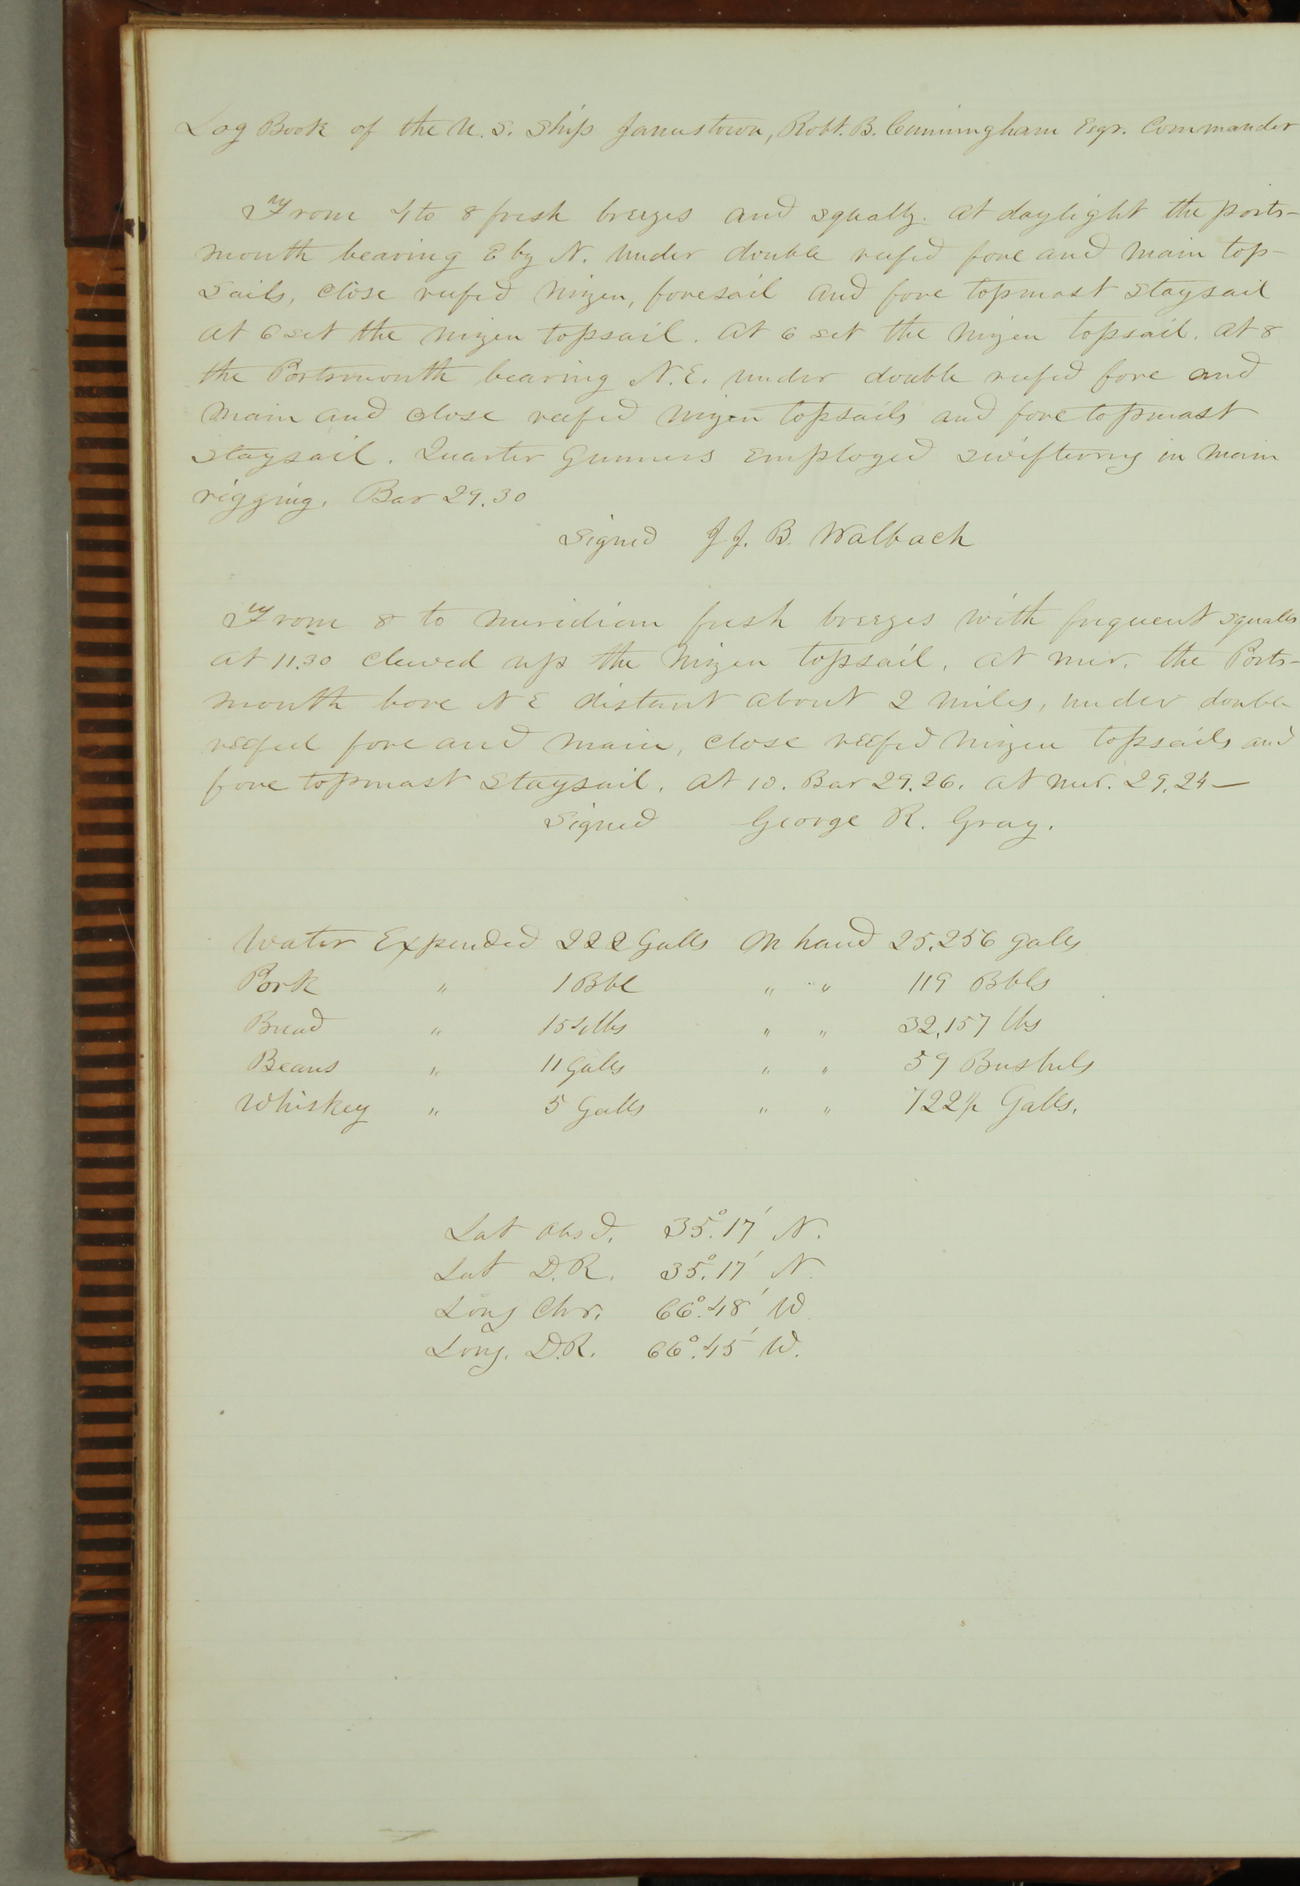 Log Book of the U. S. Ship Jamestown, Robt. B. Cunningham Esqr. Commander
From 4 to 8 fresh breezes and squally. at daylight the ports-
mouth bearing E by N. under double reefed fore and main top-
sails, close reefed mizen, foresail and fore topmast staysail
at 6 set the mizen topsail. at 6 set the mizen topsail. at 8
the Portsmouth bearing N.E. under double reefed fore and
main and close reefed mizen topsails and fore topmast
staysail. Quarter Gunners employed swiftering in main
rigging. Bar 29.30
Signed J. J. B. Walbach
From 8 to meridian fresh breezes with frequent squalls
at 11.30 clewed up the mizen topsail. at mer. the Ports-
mouth bore N E distant about 2 miles, under double
reefed fore and main, close reefed mizen topsails and
fore topmast staysail. at 10. Bar 29.26. at mer. 29.24 —
Signed George R. Gray.
Water Expended 222 Galls On hand 25,256 galls
Pork " 1 Bbl " " 119 Bbls
Bread " 154 lbs " " 32,157 lbs
Beans " 11 galls " " 59 Bushels
Whiskey " 5 Galls " " 722½ Galls.
Lat Obsd. 35°.17' N.
Lat D.R. 35°.17' N.
Long Chr. 66°.48' W
Long. D.R. 66°.45' W.